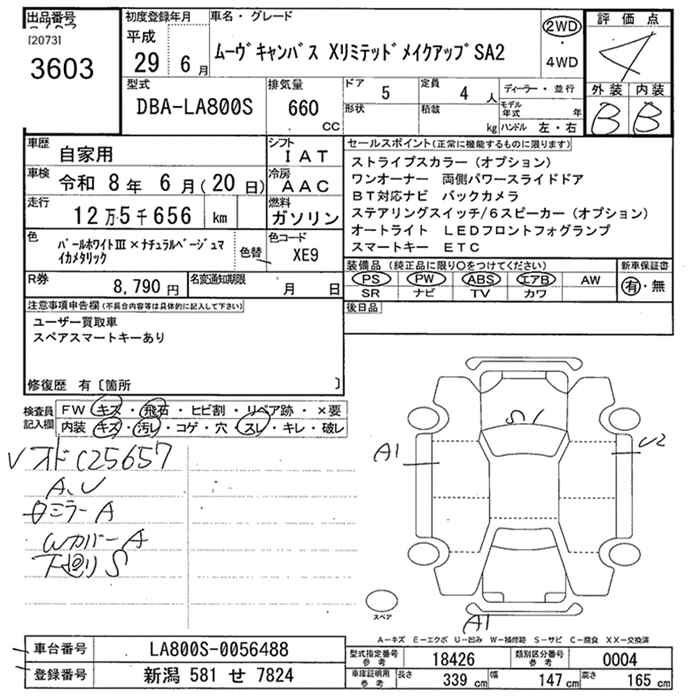 出品番号
[2073]
3603
初度登録年月
平成
29 6月
車名・グレード
ムーヴキャンバス XリミテッドメイクアップSA2
2WD
・
4WD
評価点
4
外装 内装
B B
型式
DBA-LA800S
排気量
660
CC
ドア 5
形状
定員 4 人
積載 kg
ディーラー・並行
モデル年式 年
ハンドル 左・右
車歴 自家用
シフト IAT
車検 令和 8年 6月(20日)
冷房 AAC
走行 12万5千656 km
燃料 ガソリン
色 パールホワイトⅢ×ナチュラルベージュマイカメタリック
色替
色コード XE9
R券 8,790円
名変通知期限 月 日
セールスポイント(正常に機能するものに限ります)
ストライプスカラー(オプション)
ワンオーナー 両側パワースライドドア
BT対応ナビ バックカメラ
ステアリングスイッチ/6スピーカー(オプション)
オートライト LEDフロントフォグランプ
スマートキー ETC
装備品(純正品に限り○をつけてください)
PS PW ABS エアB AW
SR ナビ TV カワ
新車保証書
有・無
後日品
注意事項申告欄(不具合内容等は具体的に記入して下さい)
ユーザー買取車
スペアスマートキーあり
修復歴 有〔箇所 〕
検査員記入欄
FW キズ・飛石・ヒビ割・リペア跡・×要
内装 キズ・汚レ・コゲ・穴・スレ・キレ・破レ
Vオドに25657
A、U
ミラーA
WカバーA
下廻りS
S1
A1
U2
A1
スペア
A-キズ E-エクボ U-凹み W-補修跡 S-サビ C-腐食 XX-交換済
車台番号 LA800S-0056488
登録番号 新潟 581 せ 7824
型式指定番号 参考 18426
類別区分番号 参考 0004
車庫証明用 参考
長さ 339 cm 幅 147 cm 高さ 165 cm